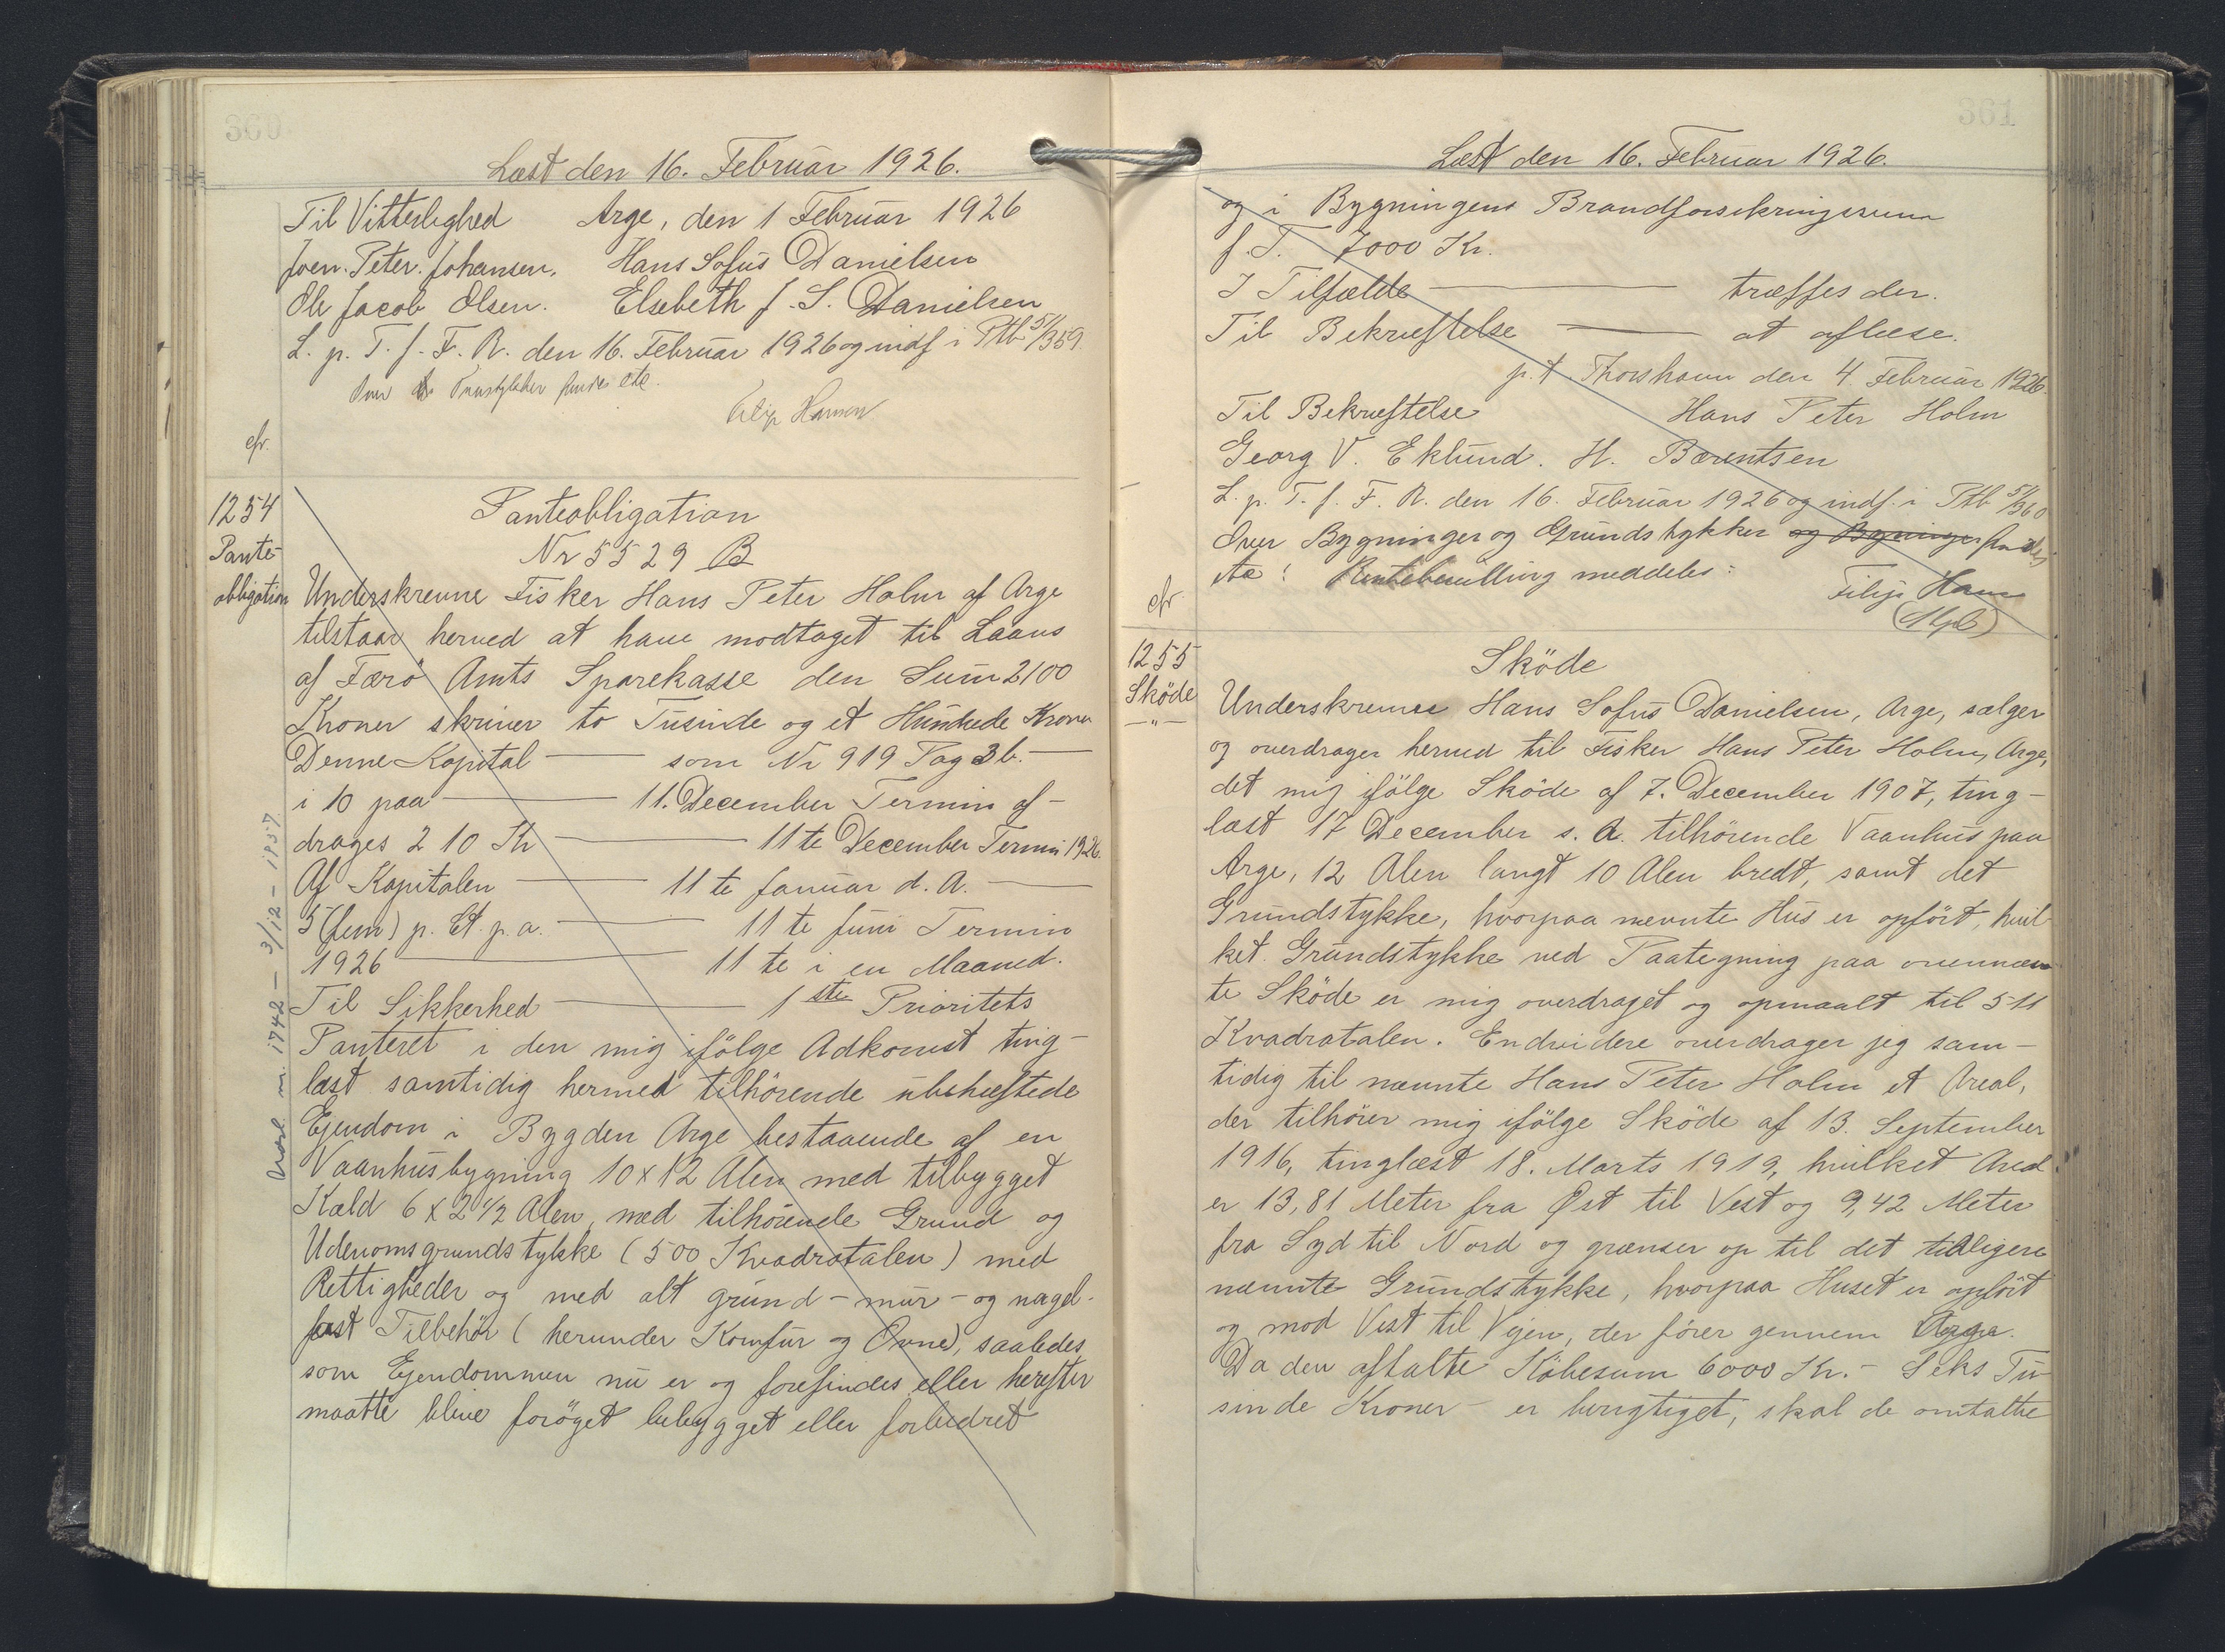 360
Læst den 16. Februar 1926.
Til Vitterlighed Arge, den 1 Februar 1926
Joen. Peter. Johansen. Hans Sofus Danielsen
Ole Jacob Olsen. Elsebeth J. S. Danielsen
L. p. T. f. F. R. den 16. Februar 1926 og indf i Ptb 51/359
etc.
cfr.
1254
Pante-
obligation
Panteobligation
Nr 5529 B
Underskrevne Fisker Hans Peter Holm af Arge
tilstaar herved at have modtaget til Laans
af Færö Amts Sparekasse den Sum 2100
Kroner skriver to Tusinde og et Hundrede Kroner
Denne Kapital — som Nr 919 Pag 3b. —
i 10 paa — 11. December Termin af-
drages 210 Kr — 11te December Termin 1926.
Af Kapitalen — 11te Januar d. A. —
5 (fem) p. Ct. p. a. — 11te Juni Termin
1926 — 11te i en Maaned.
Til Sikkerhed — 1ste Prioritets
Panteret i den mig ifölge Adkomst ting-
læst samtidig hermed tilhörende ubehæftede
Ejendom i Bygden Arge bestaaende af en
Vaanhusbygning 10 x 12 Alen med tilbygget
Kæld 6 x 2 1/2 Alen, med tilhörende Grund og
Udenomsgrundstykke (500 Kvadratalen) med
Rettigheder og med alt grund- mur- og nagel-
fast Tilbehör (herunder Komfur og Ovne), saaledes
som Ejendommen nu er og forefindes eller herefter
maatte blive foröget bebygget eller forbedret
m. 1742 - 3/12 - 1957
361
Læst den 16. Februar 1926.
og i Bygningens Brandforsikringssum
f. T. 7000 Kr.
I Tilfælde — træffes der.
Til Bekræftelse — at aflæse.
p.t. Thorshavn den 4. Februar 1926.
Til Bekræftelse Hans Peter Holm
Georg V. Eklund. H. Bærentsen
L. p. T. f. F. R. den 16. Februar 1926 og indf. i Ptb 51/360
Over Bygninger og Grundstykker og Bygninger findes
meddeles:
Filip Hansen
cfr.
1255
Sköde
-"-
Sköde
Underskrevne Hans Sofus Danielsen, Arge, sælger
og overdrager herved til Fisker Hans Peter Holm, Arge,
det mig ifölge Sköde af 7. December 1907, ting-
læst 17 December s. A. tilhörende Vaanhus paa
Arge, 12 Alen langt 10 Alen bredt, samt det
Grundstykke, hvorpaa nævnte Hus er opfört, hvil-
ket Grundstykke ved Paategning paa ovennævn-
te Sköde er mig overdraget og opmaalt til 511
Kvadratalen. Endvidere overdrager jeg sam-
tidig til nævnte Hans Peter Holm et Areal,
der tilhörer mig ifölge Sköde af 13. September
1916, tinglæst 18. Marts 1919, hvilket Areal
er 13,81 Meter fra Øst til Vest og 9,42 Meter
fra Syd til Nord og grænser op til det tidligere
nævnte Grundstykke, hvorpaa Huset er opfört
og mod Vest til Vejen, der förer gennem Arge.
Da den aftalte Köbesum 6000 Kr. - Seks Tu-
sinde Kroner - er berigtiget, skal de omtalte